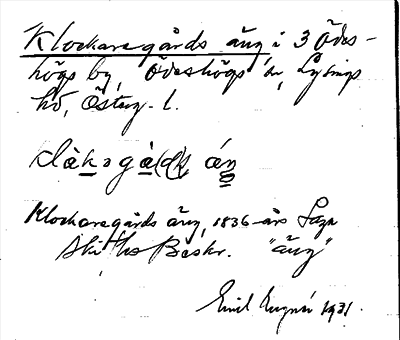 Klockaregårds äng i 3 Ödes-
högs by, Ödeshögs sn, Lysings
hd, Österg. l.
klåkəgå(d)s äŋ
Klockaregårds äng, 1836 års Laga
Skiftes Beskr. "äng"
Emil 1931.